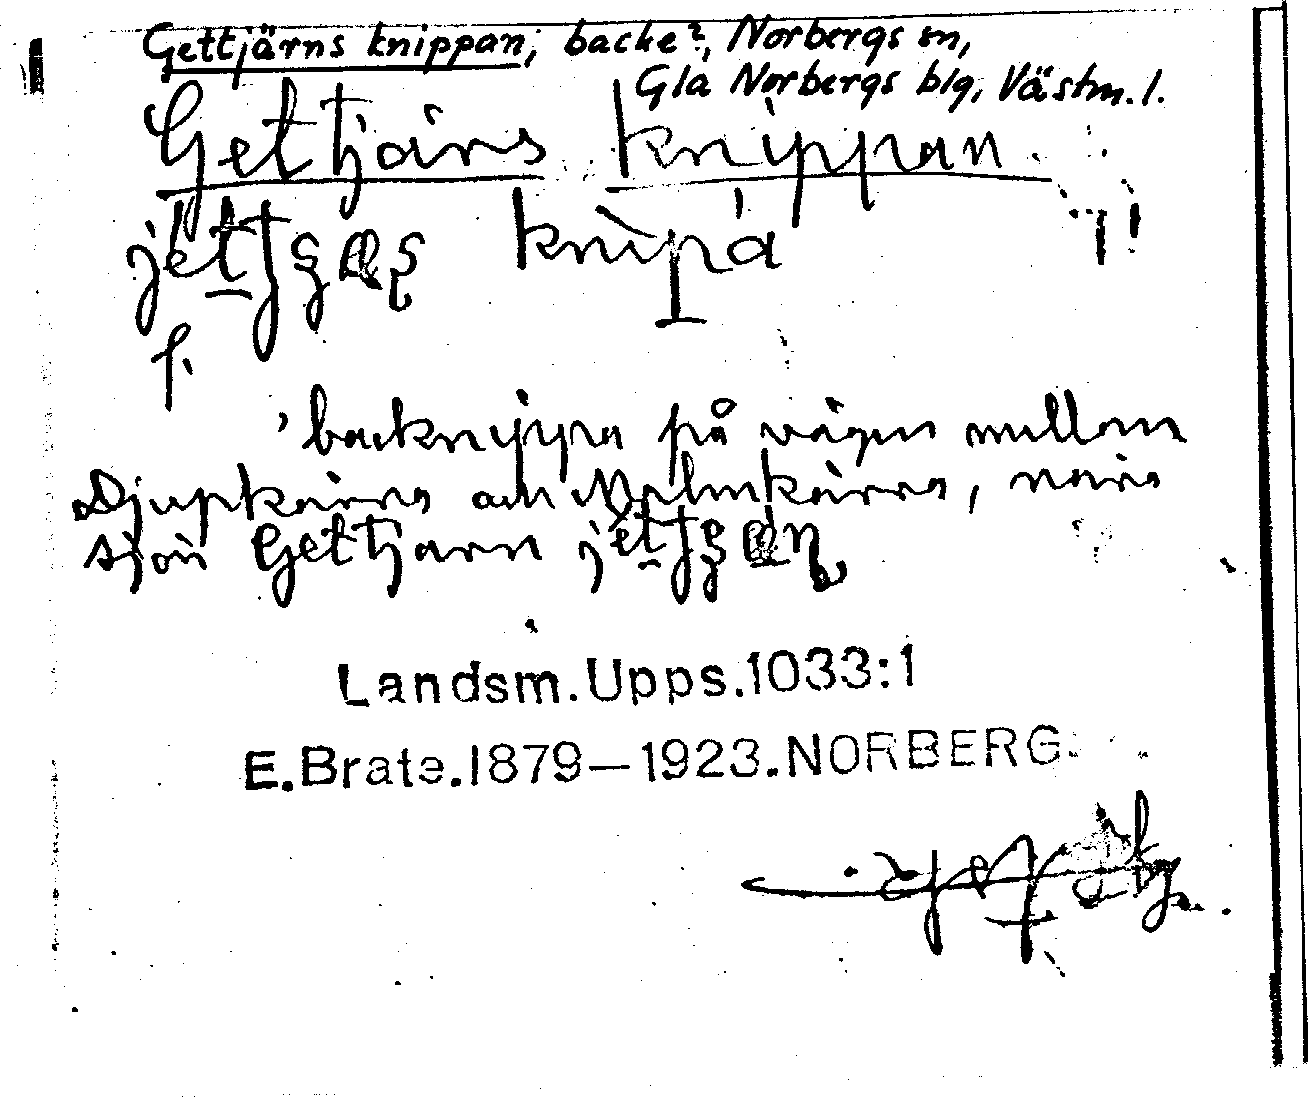 Gettjärns knippan, backe?, Norbergs sn,
Gla Norbergs blg, Västm. l.
Gettjärns knippan
f.
'backnippa på vägen mellan
Djupkärra och Malmkärra, nära
sjön Gettjärn
Landsm. Upps. 1033:1
E. Brate. 1879–1923. NORBERG.